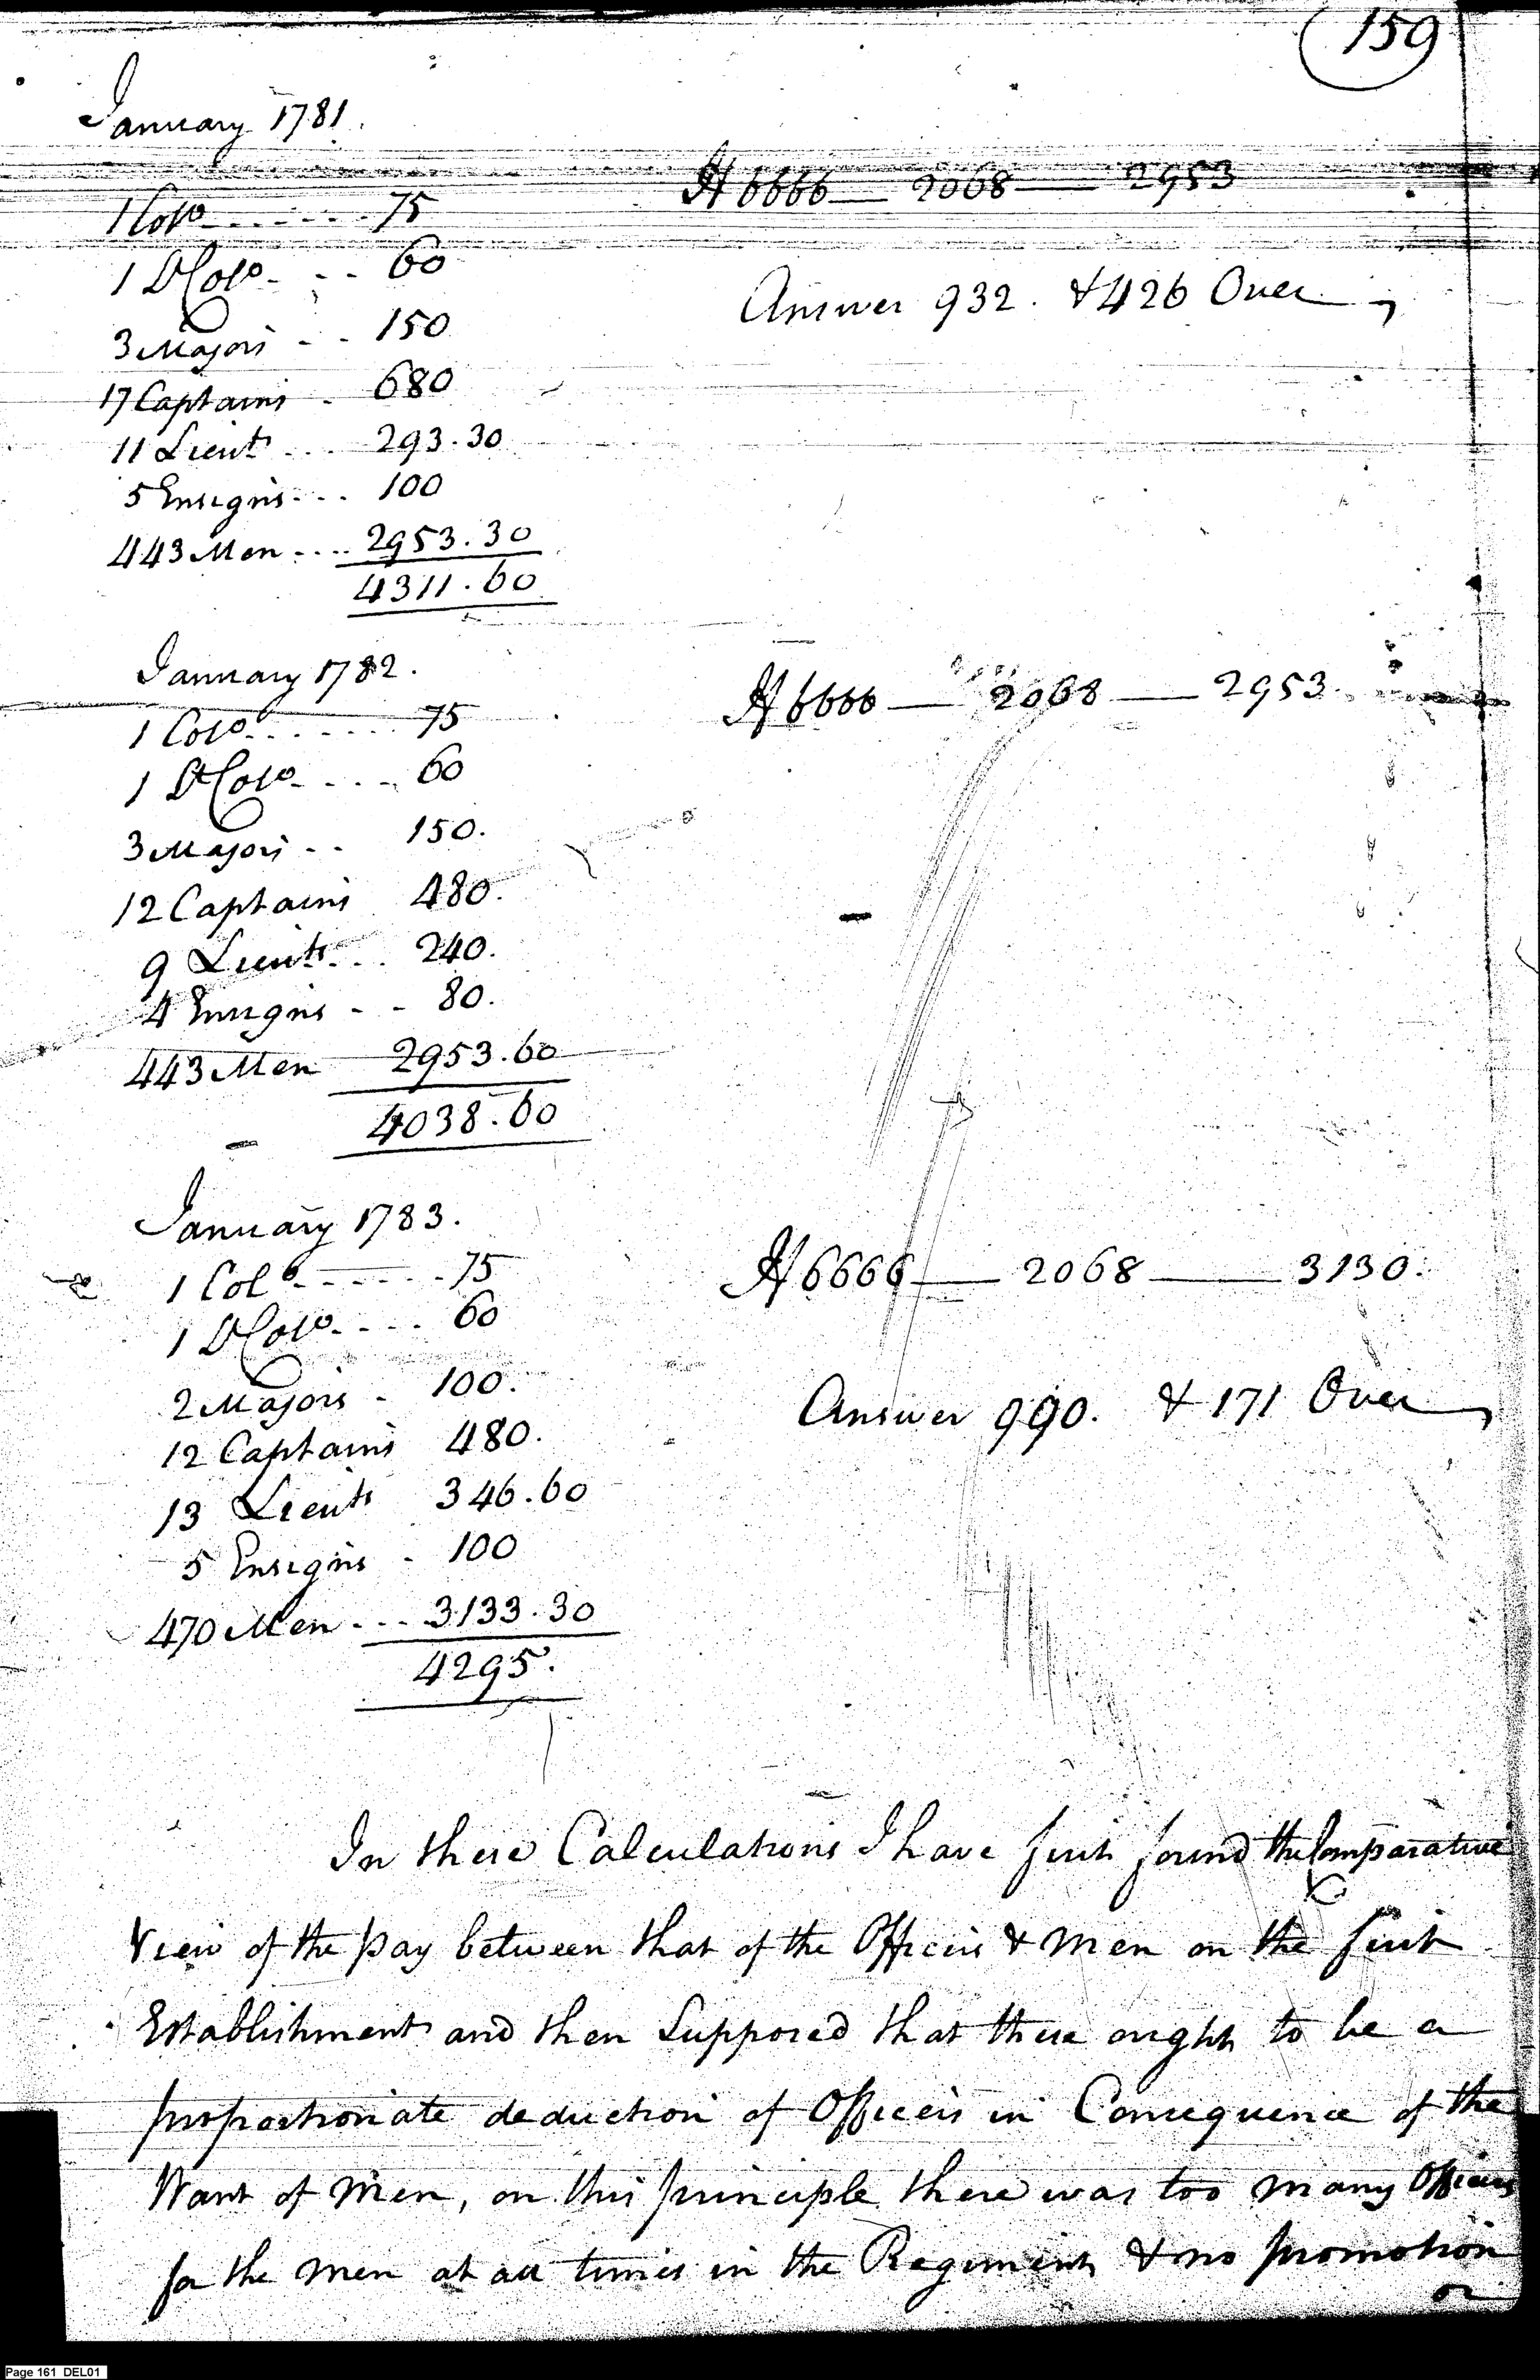 159
January 1781.
1 Colo ....... 75
If 6666 — 2068 — 2953
1 Lt Colo - - - 60
Answer 932. & 426 Over
3 Majors - - 150
17 Captains - 680
11 Lieuts ... 293.30
5 Ensigns ... 100
443 Men .... 2953.30
4311.60
January 1782.
1 Colo ....... 75
If 6666 — 2068 — 2953.
1 Lt Colo - - - - 60
3 Majors - - 150.
12 Captains 480.
9 Lieuts ... 240.
4 Ensigns - - 80.
443 Men 2953.60
4038.60
January 1783.
1 Colo ....... 75
If 6666 — 2068 — 3130.
1 Lt Colo - - - - 60
2 Majors - 100.
Answer 990. & 171 Over
12 Captains 480.
13 Lieuts 346.60
5 Ensigns - 100
470 Men - - - 3133.30
4295.
In these Calculations I have first found the Comparative
View of the pay between that of the Officers & Men on the first
Establishment and then Supposed that there ought to be a
proportionate deduction of Officers in Consequence of the
Want of Men, on this principle there was too many Officers
for the Men at all times in the Regiment & no promotion
or
Page 161 DEL01